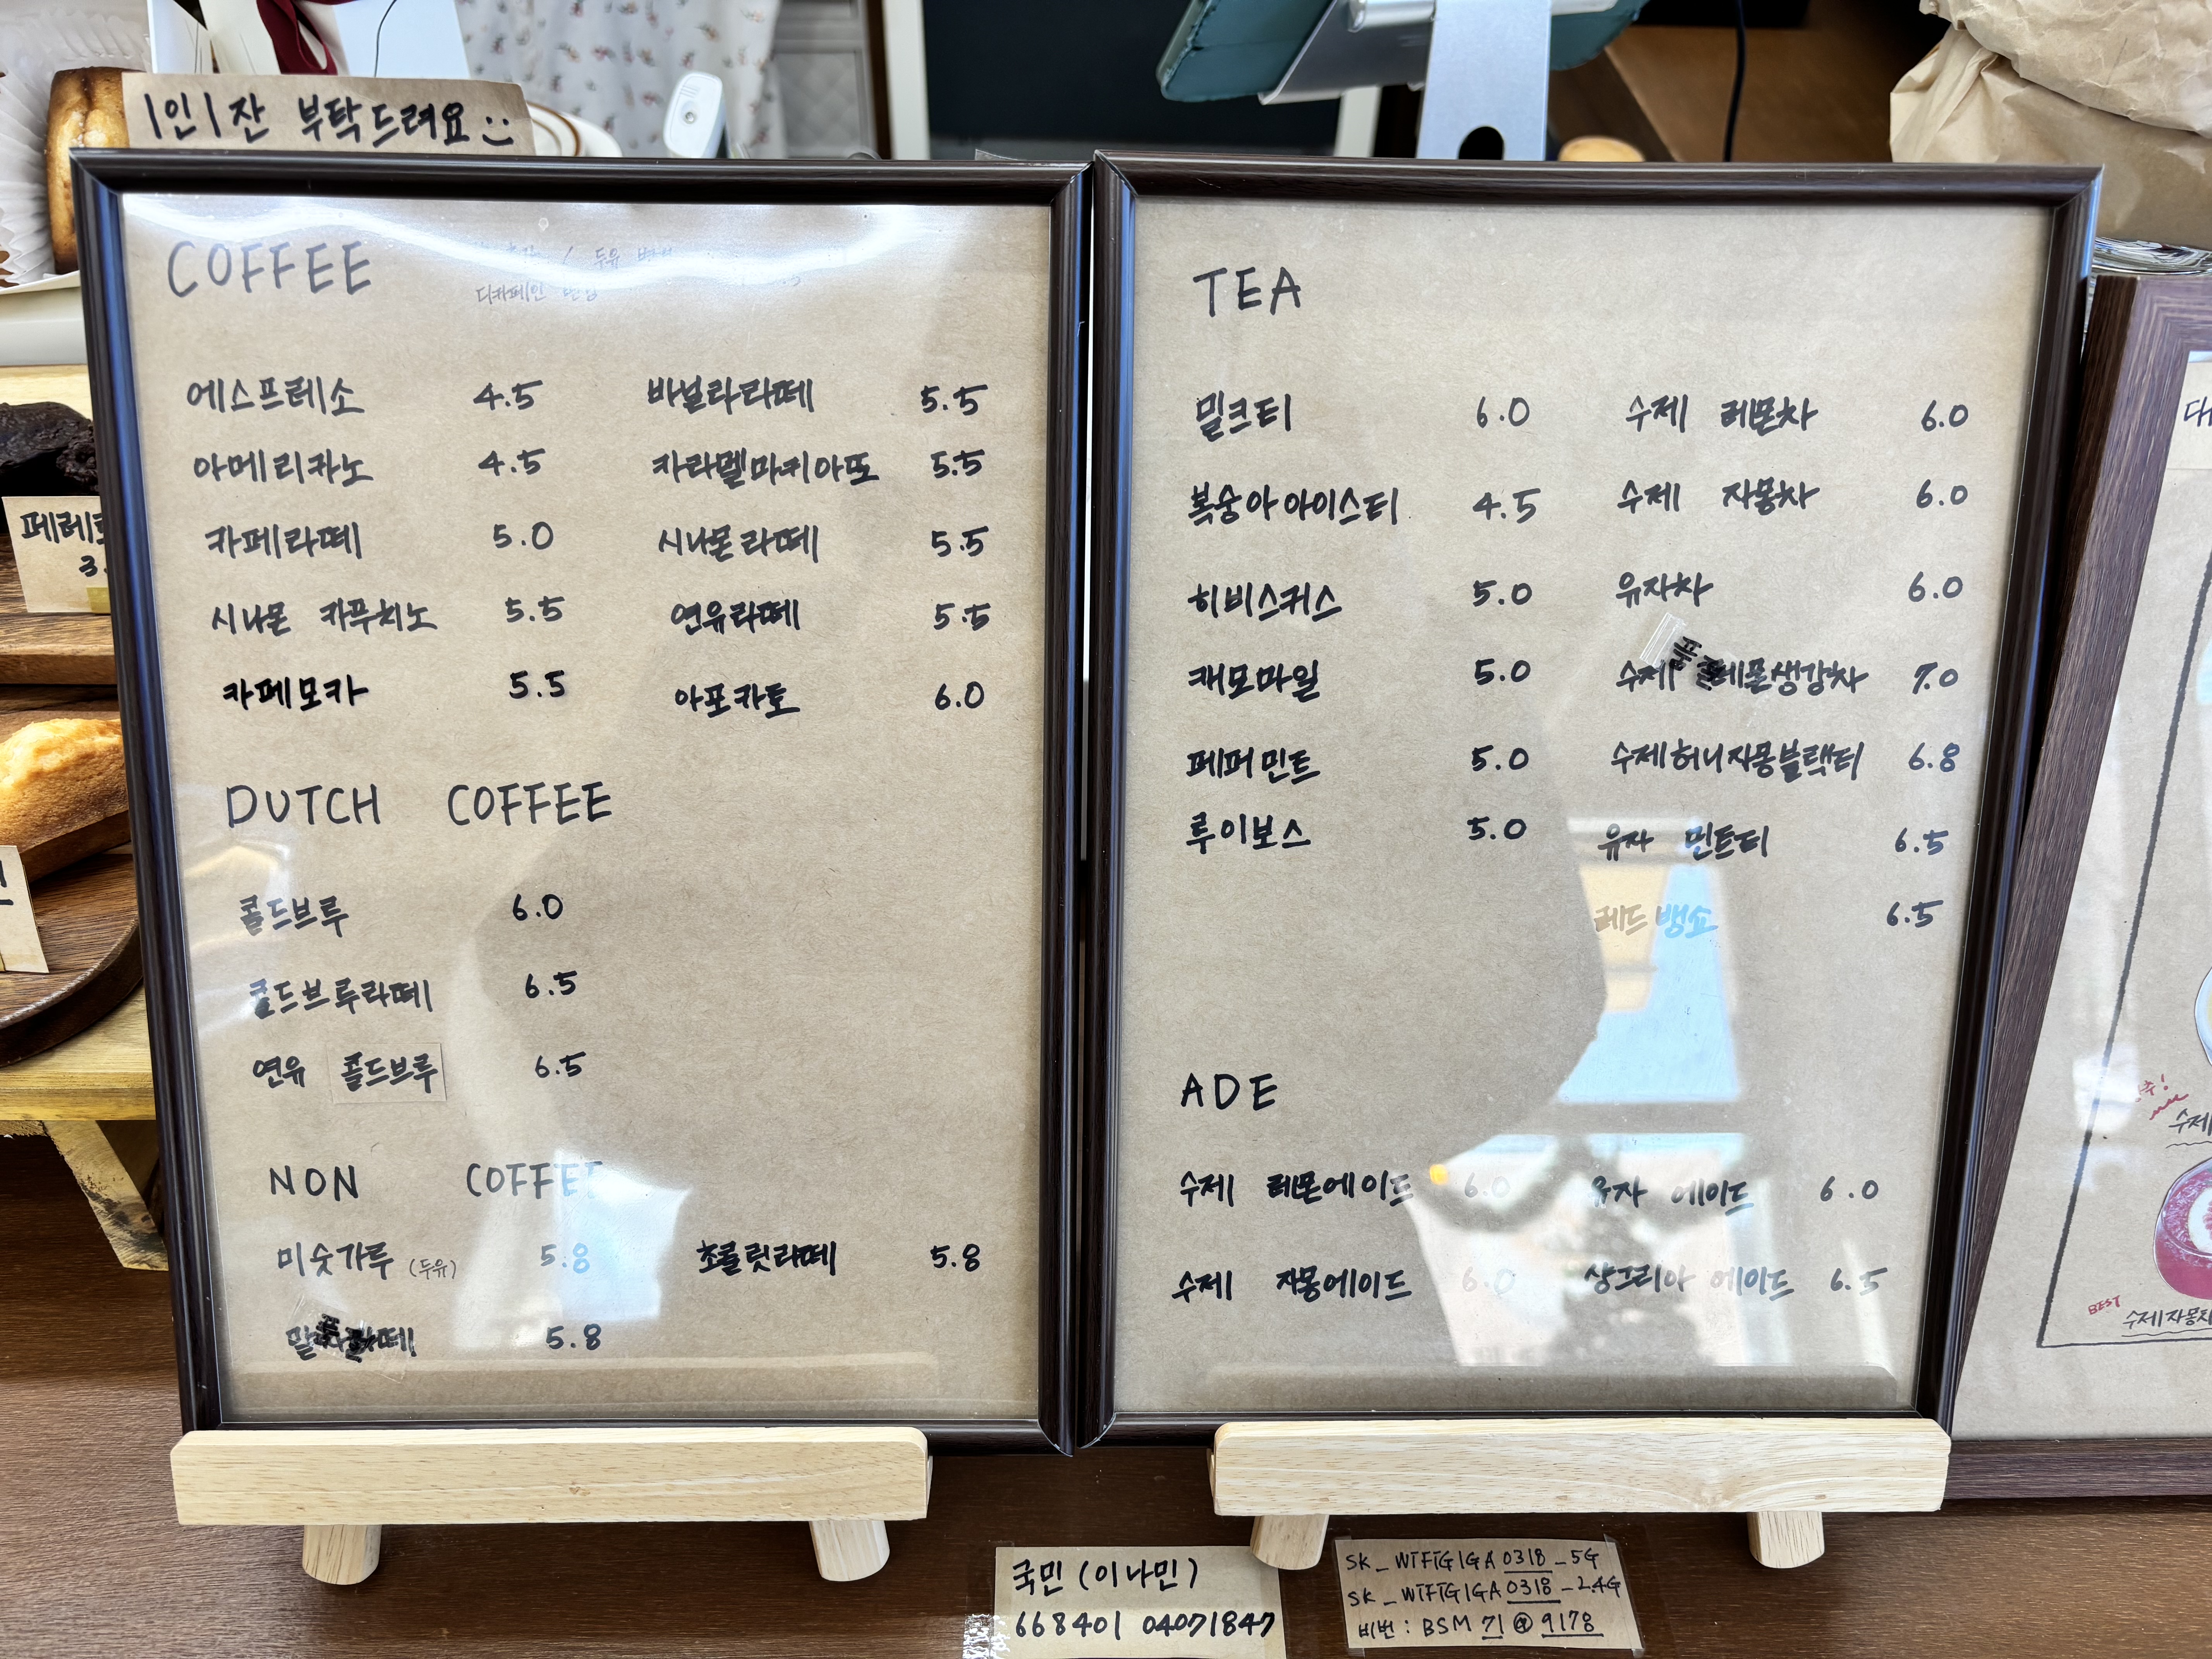 1인 1잔 부탁드려요 :)
COFFEE
두유
디카페인
에스프레소 4.5 바닐라라떼 5.5
아메리카노 4.5 카라멜마키아또 5.5
카페라떼 5.0 시나몬라떼 5.5
시나몬 카푸치노 5.5 연유라떼 5.5
카페모카 5.5 아포카토 6.0
DUTCH COFFEE
콜드브루 6.0
콜드브루라떼 6.5
연유 콜드브루 6.5
NON COFFEE
미숫가루 (두유) 5.8 초콜릿라떼 5.8
5.8
TEA
밀크티 6.0 수제 레몬차 6.0
복숭아아이스티 4.5 수제 자몽차 6.0
히비스커스 5.0 유자차 6.0
캐모마일 5.0 수제 레몬생강차 7.0
페퍼민트 5.0 수제허니자몽블랙티 6.8
루이보스 5.0 유자 민트티 6.5
레드뱅쇼 6.5
ADE
수제 레몬에이드 6.0 유자 에이드 6.0
수제 자몽에이드 6.0 샹그리아 에이드 6.5
국민 (이나민)
668401 04071847
SK_WiFiGIGA 0318_5G
SK_WiFiGIGA 0318_2.4G
비번 : BSM 71 @ 9178
페레로
3.
BEST
수제자몽차
수제